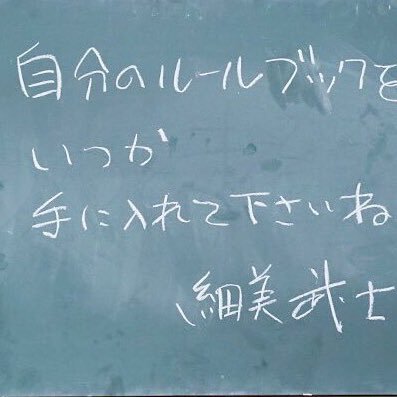 自分のルールブックを
いつか
手に入れて下さいね
細美武士